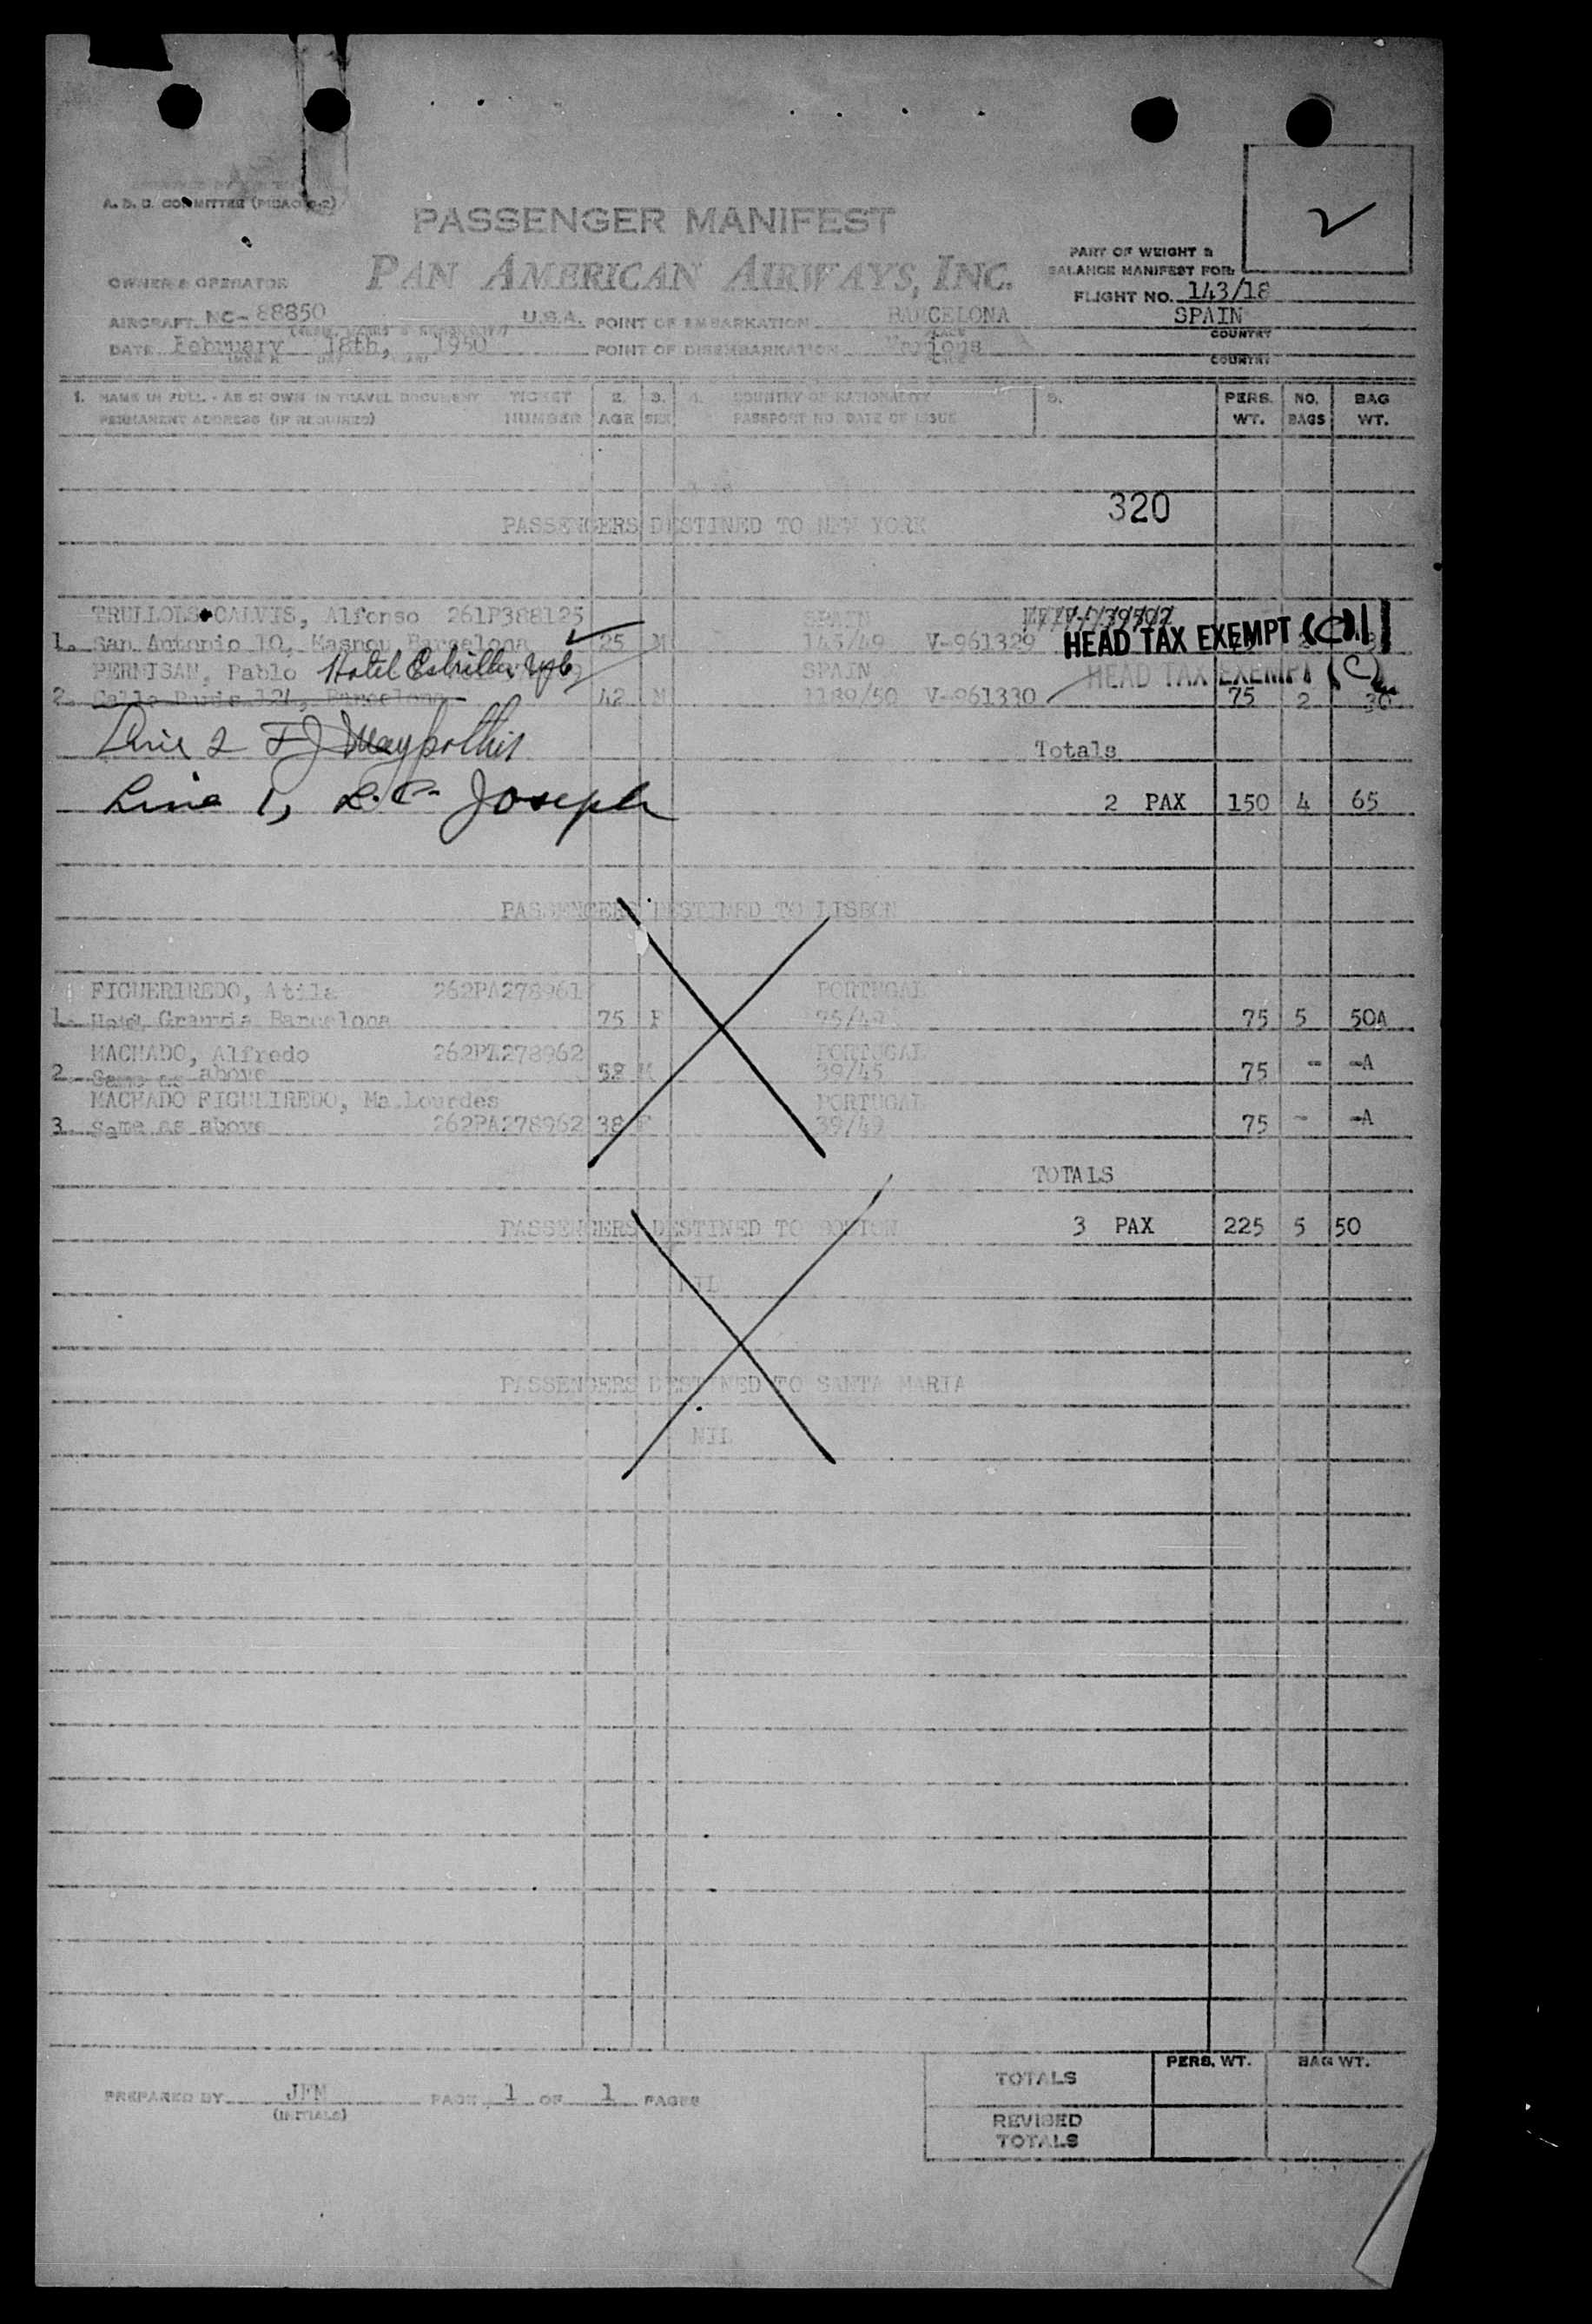 A. D. C. COMMITTEE
PASSENGER MANIFEST
PAN AMERICAN AIRWAYS, INC.
PART OF WEIGHT &
BALANCE MANIFEST FOR:
OWNER & OPERATOR
FLIGHT NO. 143/18
AIRCRAFT NC-88850 U.S.A. POINT OF EMBARKATION BARCELONA SPAIN
PLACE COUNTRY
DATE February 18th, 1950 POINT OF DISEMBARKATION Various
COUNTRY
1. NAME IN FULL - AS SHOWN IN TRAVEL DOCUMENT TICKET 2. 3. 4. COUNTRY OF NATIONALITY 5. PERS. NO. BAG
PERMANENT ADDRESS (IF REQUIRED) NUMBER AGE SEX PASSPORT NO. DATE OF ISSUE WT. BAGS WT.
320
PASSENGERS DESTINED TO NEW YORK
TRULLOLS CALVIS, Alfonso 261P388125 SPAIN
1. San Antonio 10, Masnou Barcelona 25 M 143/49 V-961329 HEAD TAX EXEMPT (C)
PERNISAN, Pablo Hotel SPAIN HEAD TAX EXEMPT (C)
2. Calle Paris 124, Barcelona 42 M 1189/50 V-961330 75 2 30
Line 2 Totals
Line 1, L.C. Joseph 2 PAX 150 4 65
PASSENGERS DESTINED TO LISBON
FIGUERIREDO, Atila 262PA278961 PORTUGAL
1. Hotel Granvia Barcelona 75 F 95/49 75 5 50A
MACHADO, Alfredo 262PA278962 PORTUGAL
2. Same as above 58 M 39/45 75 - -A
MACHADO FIGULIREDO, Ma.Lourdes PORTUGAL
3. Same as above 262PA278962 38 F 39/49 75 - -A
TOTALS
PASSENGERS DESTINED TO BOSTON 3 PAX 225 5 50
NIL
PASSENGERS DESTINED TO SANTA MARIA
NIL
PERS. WT. BAG WT.
TOTALS
PREPARED BY JFM PAGE 1 OF 1 PAGES
(INITIALS)
REVISED
TOTALS